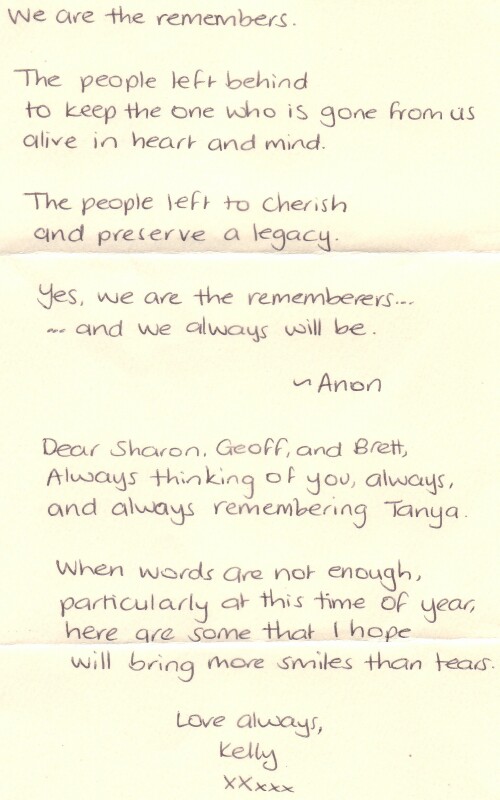 We are the remembers.
The people left behind
to keep the one who is gone from us
alive in heart and mind.
The people left to cherish
and preserve a legacy.
Yes, we are the rememberers...
... and we always will be.
~ Anon
Dear Sharon, Geoff, and Brett,
Always thinking of you, always,
and always remembering Tanya.
When words are not enough,
particularly at this time of year,
here are some that I hope
will bring more smiles than tears.
Love always,
Kelly
xxxxx